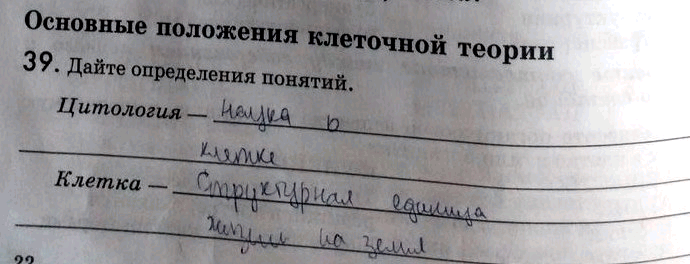 Основные положения клеточной теории
39. Дайте определения понятий.
Цитология — наука о
клетке
Клетка — структурная единица
жизни на земле
22